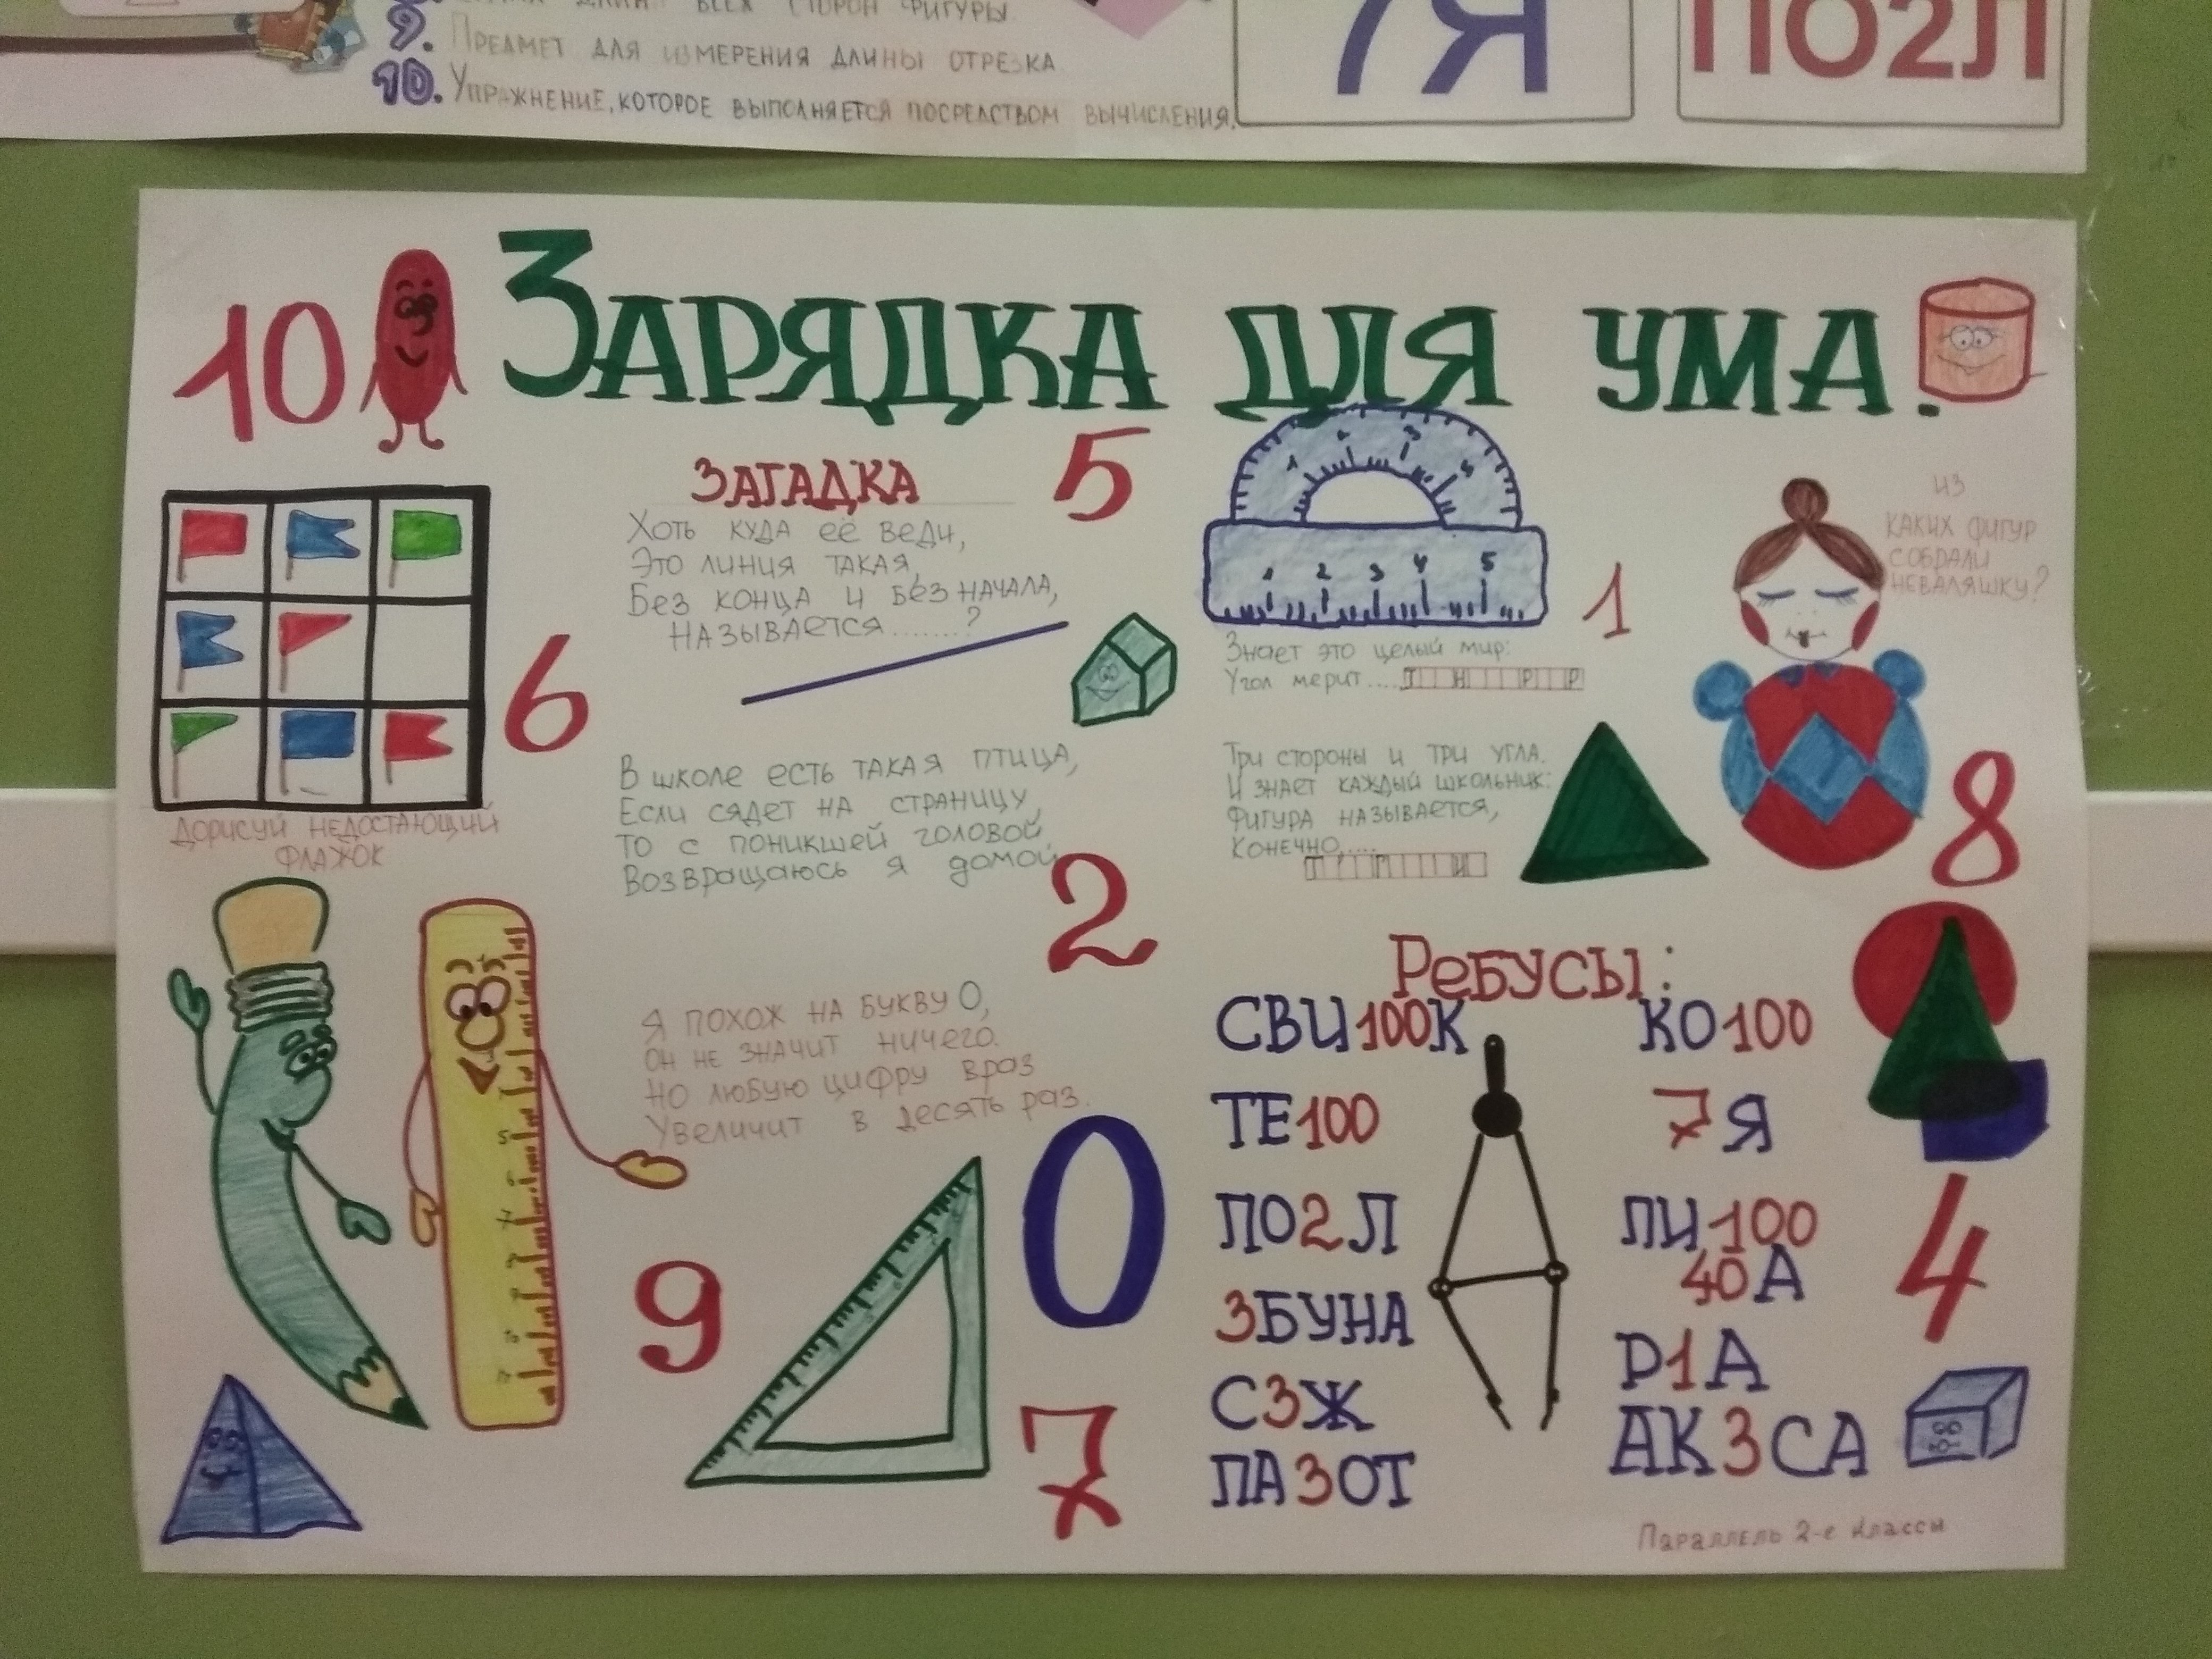 9.
ВСЕХ СТОРОН ФИГУРЫ
ПРЕДМЕТ ДЛЯ ИЗМЕРЕНИЯ ДЛИНЫ ОТРЕЗКА
10. УПРАЖНЕНИЕ, КОТОРОЕ ВЫПОЛНЯЕТСЯ ПОСРЕДСТВОМ ВЫЧИСЛЕНИЯ.
7Я
ПО2Л
10
ЗАРЯДКА ДЛЯ УМА.
ДОРИСУЙ НЕДОСТАЮЩИЙ
ФЛАЖОК
6
ЗАГАДКА
5
Хоть куда её веди,
Это линия такая,
Без конца и без начала,
Называется.......?
В школе есть такая птица,
Если сядет на страницу,
То с поникшей головой
Возвращаюсь я домой
2
Я похож на букву О,
Он не значит ничего.
Но любую цифру враз
Увеличит в десять раз.
0
9
7
1 2 3 4 5
1
Знает это целый мир:
Угол мерит....Т Н Р Р
Три стороны и три угла.
И знает каждый школьник:
Фигура называется,
Конечно.....
Т Г И
ИЗ
КАКИХ ФИГУР
СОБРАЛИ
НЕВАЛЯШКУ?
8
РЕБУСЫ:
СВИ100К
ТЕ100
ПО2Л
3БУНА
С3Ж
ПА3ОТ
КО100
7Я
ЛИ100
40А
Р1А
АК3СА
4
Параллель 2-е классы